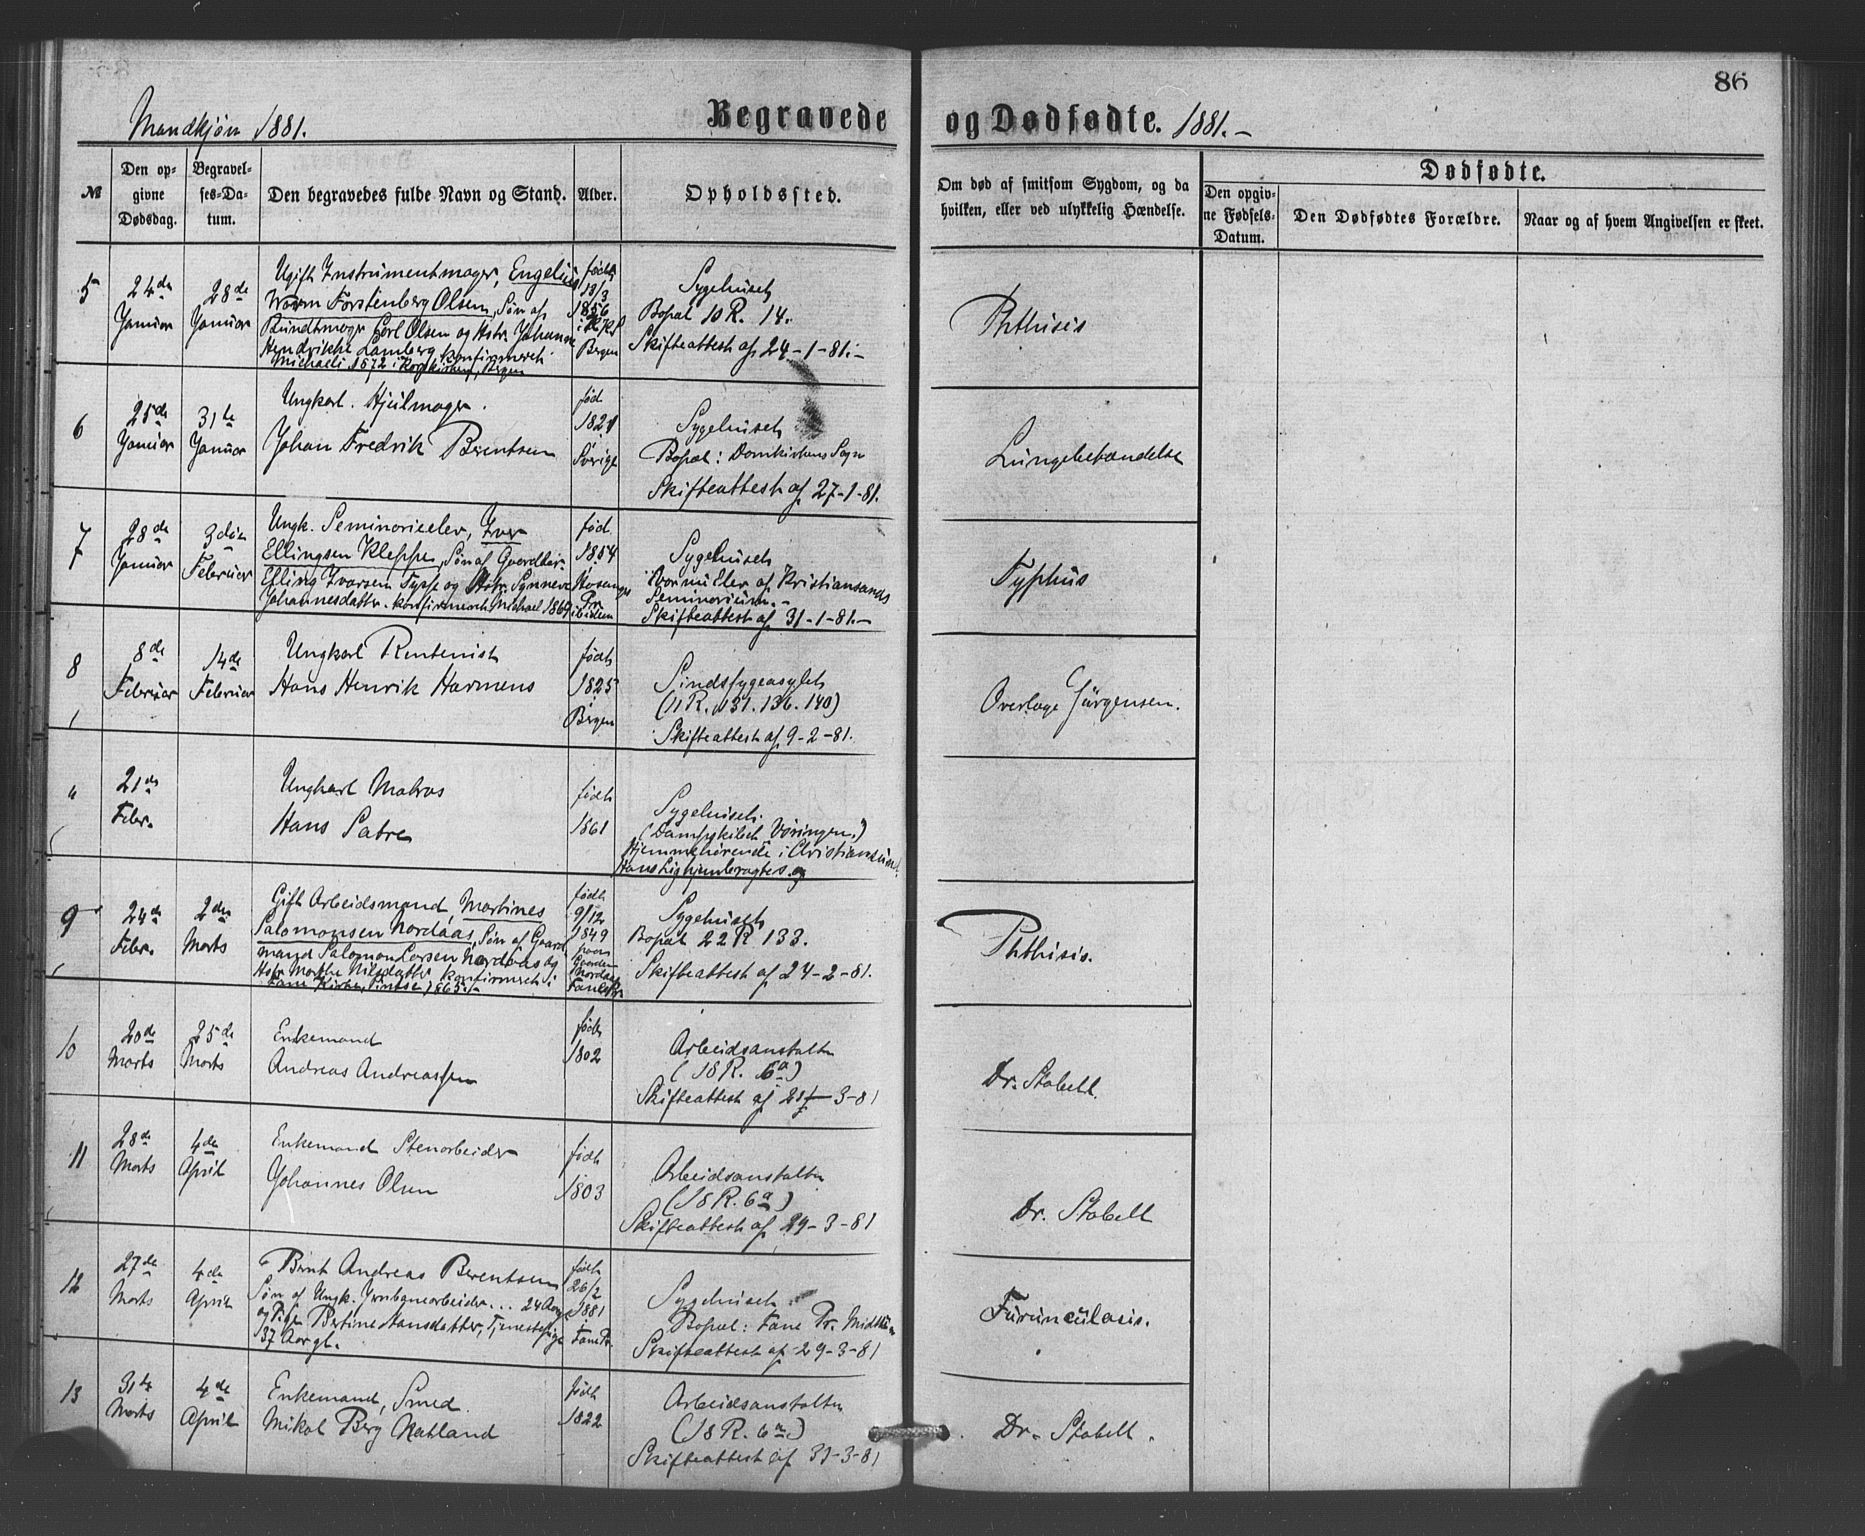 86
Mandkjøn 1881.
Begravede og Dødfødte. 1881.-
№
Den opgivne Dødsdag.
Begravelses-Datum.
Den begravedes fulde Navn og Stand.
Alder.
Opholdssted.
Om død af smitsom Sygdom, og da hvilken, eller ved ulykkelig Hændelse.
Dødfødte.
Den opgivne Fødsels-Datum.
Den Dødfødtes Forældre.
Naar og af hvem Angivelsen er skeet.
5
24de Januar
28de Januar
Ugift Instrumentmager, Engelius
Worm Forstenberg Olsen, Søn af
Bundtmager Carl Olsen og Hstr. Johanne
Hendrikke Lamberg, konfirmeret
Michaeli 1872 i Korskirken, Bergen
født
13/3
1856
Bergen
Sygehuset
Bopæl 10 R. 14.
Skifteattest af 24-1-81.-
Phthisis
6
25de Januar
31te Januar
Ungkarl. Hjulmager.
Johan Fredrik Berentsen
fød
1821
Sverige
Sygehuset
Bopæl: Domkirkens Sogn
Skifteattest af 27-1-81.
Lungebetændelse
7
28de Januar
3die Februar
Ungk. Seminarieelev, Iver
Ellingsen Kleppe, Søn af Gaardbr.
Elling Ivarsen Typpe og Hstr. Synneve
Johannesdatter. konfirmeret Michael 1869
fød.
1854
Hosanger
Pr.
ibidem
Sygehuset
Elev af Kristiansands
Seminarium.-
Skifteattest af 31-1-81.-
Typhus
8
8de Februar
14de Februar
Ungkarl Rentenist
Hans Henrik Harmens
født
1825
Bergen
Sindssygeasylet
(11 R. 131. 136. 140)
Skifteattest af 9-2-81.
Overlæge Jürgensen.
"
21de Febr.
Ungkarl Matros
Hans Satre
født
1861
Sygehuset.
(Dampskibet Vøringen.)
Hjemmehørende i Christiansund
Hans Lig hjembragtes.
9
24de Febr.
2den Marts
Gift Arbeidsmand, Martines
Salomonsen Nordaas, Søn af Gaard
mand Salomon Larsen Nordaas og
Hstr. Marthe Nilsdatter konfirmeret i
Fane Kirke, Pintse 1865.-
født
9/12
1849
paa
Gaarden
Nordaas
Fane Pr.
Sygehuset
Bopæl 22 R 133.
Skifteattest af 24-2-81.
Phthisis.
10
20de Marts
25de Marts
Enkemand
Andreas Andreassen
født
1802
Arbeidsanstalten
(18 R. 6a)
Skifteattest af 21-3-81
Dr. Stabell.
11
28de Marts
4de April
Enkemand Stenarbeider
Johannes Olsen
født
1803
Arbeidsanstalten
(18 R. 6a)
Skifteattest af 29-3-81
Dr. Stabell
12
27de Marts
4de April
Bernt Andreas Berentsen
Søn af Ungk. Jernbanearbeider ... 24 Aar gl.
og Pige Bertine Hansdatter, Tjenestepige
37 Aar gl.
født
26/2
1881
i
Fane Pr.
Sygehuset.
Bopæl: Fane Pr. Midttun
Skifteattest af 29-3-81
Furunculosis.
13
31te Marts
4de April
Enkemand, Smed.
Mikal Berg Natland
født
1822
Arbeidsanstalten
(18 R. 6a)
Skifteattest af 31-3-81
Dr. Stabell.